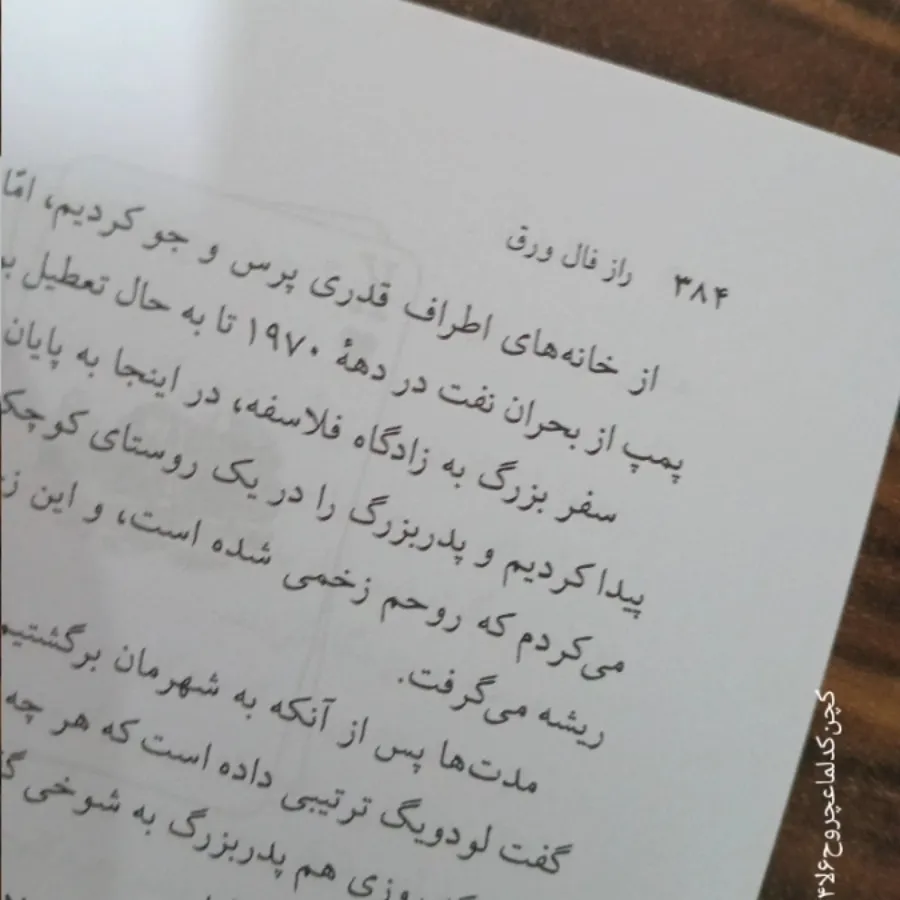 ۳۸۴ راز فال ورق
از خانه‌های اطراف قدری پرس و جو کردیم، امّا
پمپ از بحران نفت در دههٔ ۱۹۷۰ تا به حال تعطیل
سفر بزرگ به زادگاه فلاسفه، در اینجا به پایان
پیدا کردیم و پدربزرگ را در یک روستای
می‌کردم که روحم زخمی شده است، و این
ریشه می‌گرفت.
مدت‌ها پس از آنکه به شهرمان
گفت لودویگ ترتیبی داده است که هر چه
روزی هم پدربزرگ به شوخی